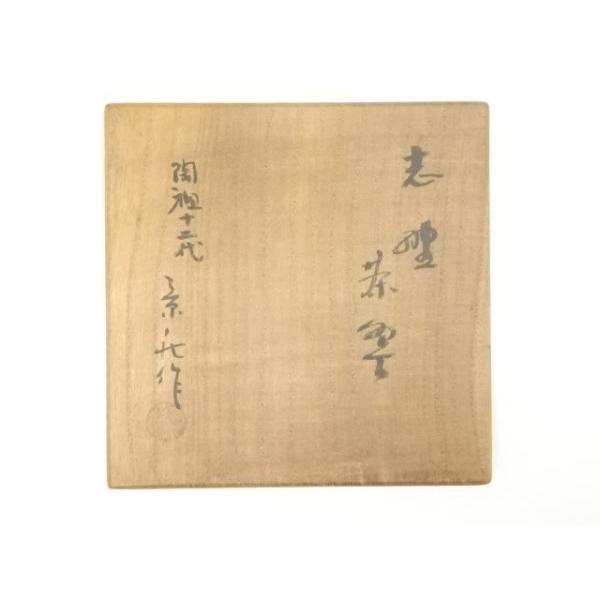 志野
茶碗
陶祖十二代
景九作